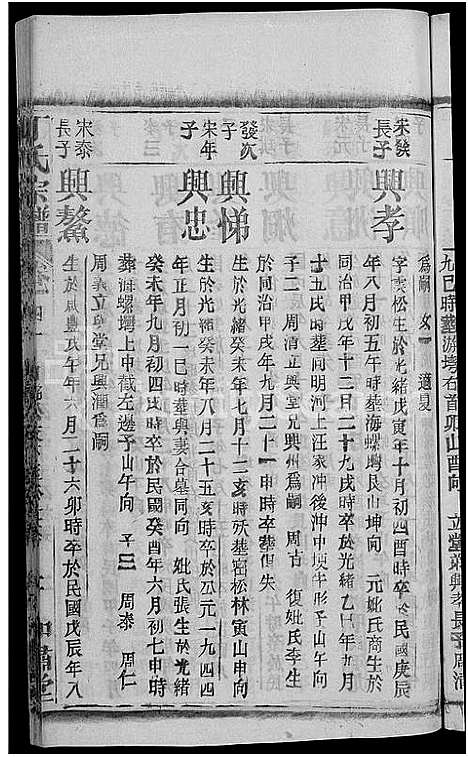 九巳時塟游塆右首卯山酉向 立堂弟興孝長子周清
爲嗣 女一 適夏
宋發
長子
興孝
字雲松生於光緒戊寅年十月初四酉時卒於民國庚辰
年八月初五午時塟海螺塆艮山坤向 元妣氏商生於
同治甲戌年十二月二十九戌時卒於光緒乙巳年九月
十五戌時塟同明河上汪家冲後沖中埂午形子山午向
子二 周清立興堂兄興州爲嗣 周古 復妣氏李生
於同治甲戌年六月二十一申時卒塟俱失
發次
子
興悌
生於光緒癸未年七月十二亥時殀塟窑松林寅山申向
宋年
子
興忠
生於光緒癸未年八月二十五亥時卒於公元一九四四
年正月初一巳時塟與妻合墓同向 妣氏張生於光緒
癸未年九月初四戌時卒於民國癸酉年六月初七申時
塟海螺塆上中截左邊子山午向 子三 周泰 周仁
周義立興堂兄興灛爲嗣
宋泰
長子
興鰲
生於咸豐戊午年六月二十六卯時卒於民國戊辰年八
氏宗譜